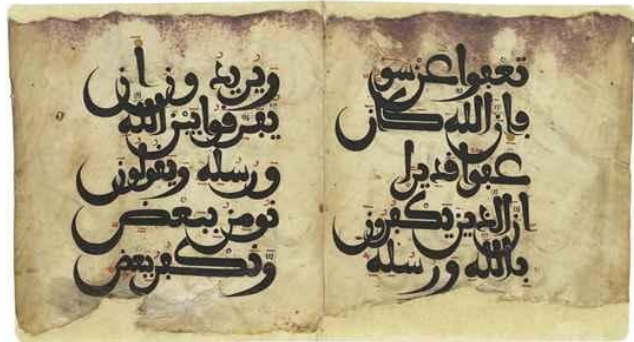 تعفوا عن سو
فان الله كان
عفوا قديرا
ان الذين يكفرون
بالله ورسله
ويريدون ان
يفرقوا بين الله
ورسله ويقولون
نومن ببعض
ونكفر ببعض